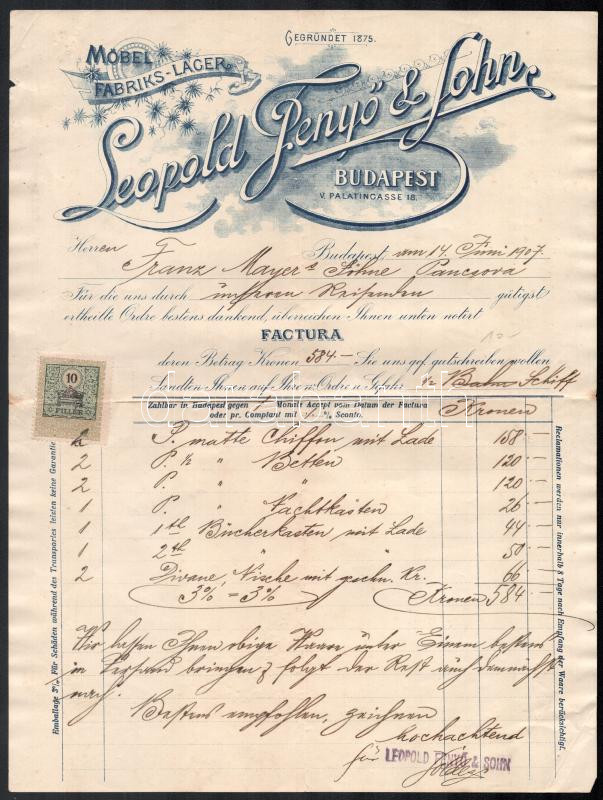 GEGRÜNDET 1875.
MÖBEL
FABRIKS-LAGER
Leopold Fenyö & Sohn
BUDAPEST
V. PALATINGASSE 18.
Herren Budapest, am 14. Juni 1907.
Franz Mayer's Söhne Pancsova
Für die uns durch unseren Reisenden gütigst
ertheilte Ordre bestens dankend, überreichen Ihnen unten notirt
FACTURA
deren Betrag Kronen 584.— Sie uns gef. gutschreiben wollen
Sandten Ihnen auf Ihre w. Ordre u. Gefahr Schiff
10
FILLER
Zahlbar in Budapest gegen Monats Accept vom Datum der Factura
oder pr. Comptant mit % Sconto.
Kronen
2 P. matte Chiffon mit Lade 158.—
2 P. ½ " Betten 120.—
2 P. " " 120.—
1 P. " Nachtkästen 26.—
1 1th Bücherkasten mit Lade 44.—
1 2th " " 50.—
2 Divane, Nische mit Kr. 66.—
3% = 3% Kronen 584.—
Wir lassen Ihnen obige Waare unter Einem bestens
in Versand bringen & folgt der Rest auch demnächst
nach.
Bestens empfohlen, zeichnen
hochachtend
für LEOPOLD FENYÖ & SOHN
Emballage 3%. Für Schäden während des Transportes leisten keine Garantie
Reclamationen werden nur innerhalb 8 Tage nach Empfang der Waare berücksichtigt.
darabanth